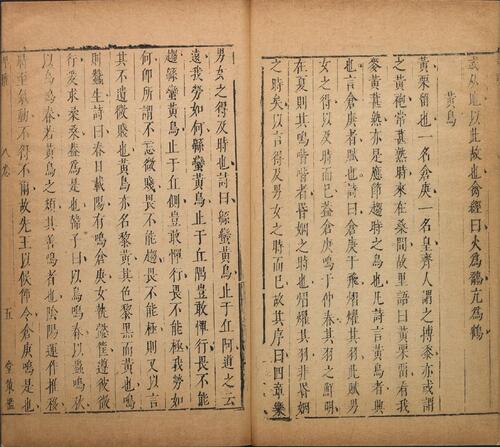 也以此故也禽經曰火為鷮亢為鶴
黃鳥
黃栗留也一名倉庚一名皇齊人謂之搏黍亦或謂
之黃袍常葚熟時來在桑間故里語曰黃栗留看我
麥黃葚熟亦是應節趨時之鳥也凡詩言黃鳥者興
也言倉庚者賦也詩曰倉庚于飛熠燿其羽此賦男
女之得以及時而已蓋倉庚鳴于仲春其羽之鮮明
在夏則其鳴嘒嘒者昏姻之時也熠燿其羽非昏姻
之時矣以言得及男女之時而已故其序曰四章樂
男女之得及時也詩曰緜蠻黃鳥止于丘阿道之云
遠我勞如何緜蠻黃鳥止于丘隅豈敢憚行畏不能
趨緜蠻黃鳥止于丘側豈敢憚行畏不能極我勞如
何即所謂不忘微賤畏不能趨畏不能極則又以言
其不遺微賤也黃鳥亦名黎黃其色黎黑而黃也鳴
則蠶生詩曰春日載陽有鳴倉庚女執懿筐遵彼微
行爰求柔桑蓋為是也韓子曰以鳥鳴春以蟲鳴秋
以鳥鳴春若黃鳥之類其善鳴者也陰陽運作推移
時至氣動不得不爾故先王以候節令倉庚鳴是也
埤雅 八卷 五 堂策檻